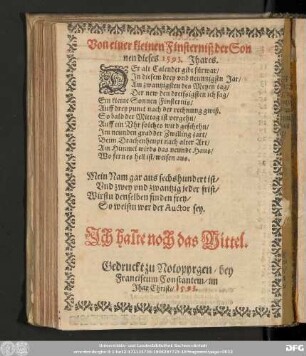 Von einer kleinen Finsterniß der Son
nen dieses 1593. Jhares.
DEr alt Calender gibt fürwar/
In diesem drey vnd neuntzigsten Jar/
Am zwantzigsten des Meyen tag/
Der new den dreissigsten ich sag/
Ein kleine Sonnen Finsternis/
Auff drey punct nach der rechnung gwiß.
So bald der Mittag ist vergehn/
Auff ein Vhr solches wird gesehen/
Im neunden grad der Zwilling zart/
Beim Drachenheupt nach alter Art/
Am Himmel wirds das neunde Haus/
Wo fern es hell ist/ weisen aus.
Mein Nam gar aus sechshundert ist/
Vnd zwey vnd zwantzig jeder frist/
Wirstu denselben finden frey/
So weistu wer der Auctor sey.
Ich halte noch das Mittel.
Gedruckt zu Notopyrgen/ bey
Franciscum Constantem/ im
Jhar Christi/ 1593.